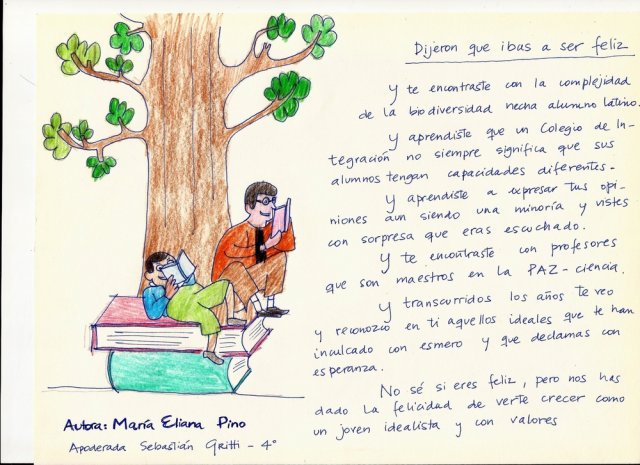 Dijeron que ibas a ser feliz
Y te encontraste con la complejidad
de la biodiversidad hecha alumno latino.
Y aprendiste que un Colegio de In-
tegración no siempre significa que sus
alumnos tengan capacidades diferentes.
Y aprendiste a expresar tus opi-
niones aun siendo una minoría y vistes
con sorpresa que eras escuchado.
Y te encontraste con profesores
que son maestros en la PAZ-ciencia.
Y transcurridos los años te veo
y reconozco en ti aquellos ideales que te han
inculcado con esmero y que declamas con
esperanza.
No sé si eres feliz, pero nos has
dado la felicidad de verte crecer como
un joven idealista y con valores
Autora: María Eliana Pino
Apoderada Sebastián Gritti - 4°